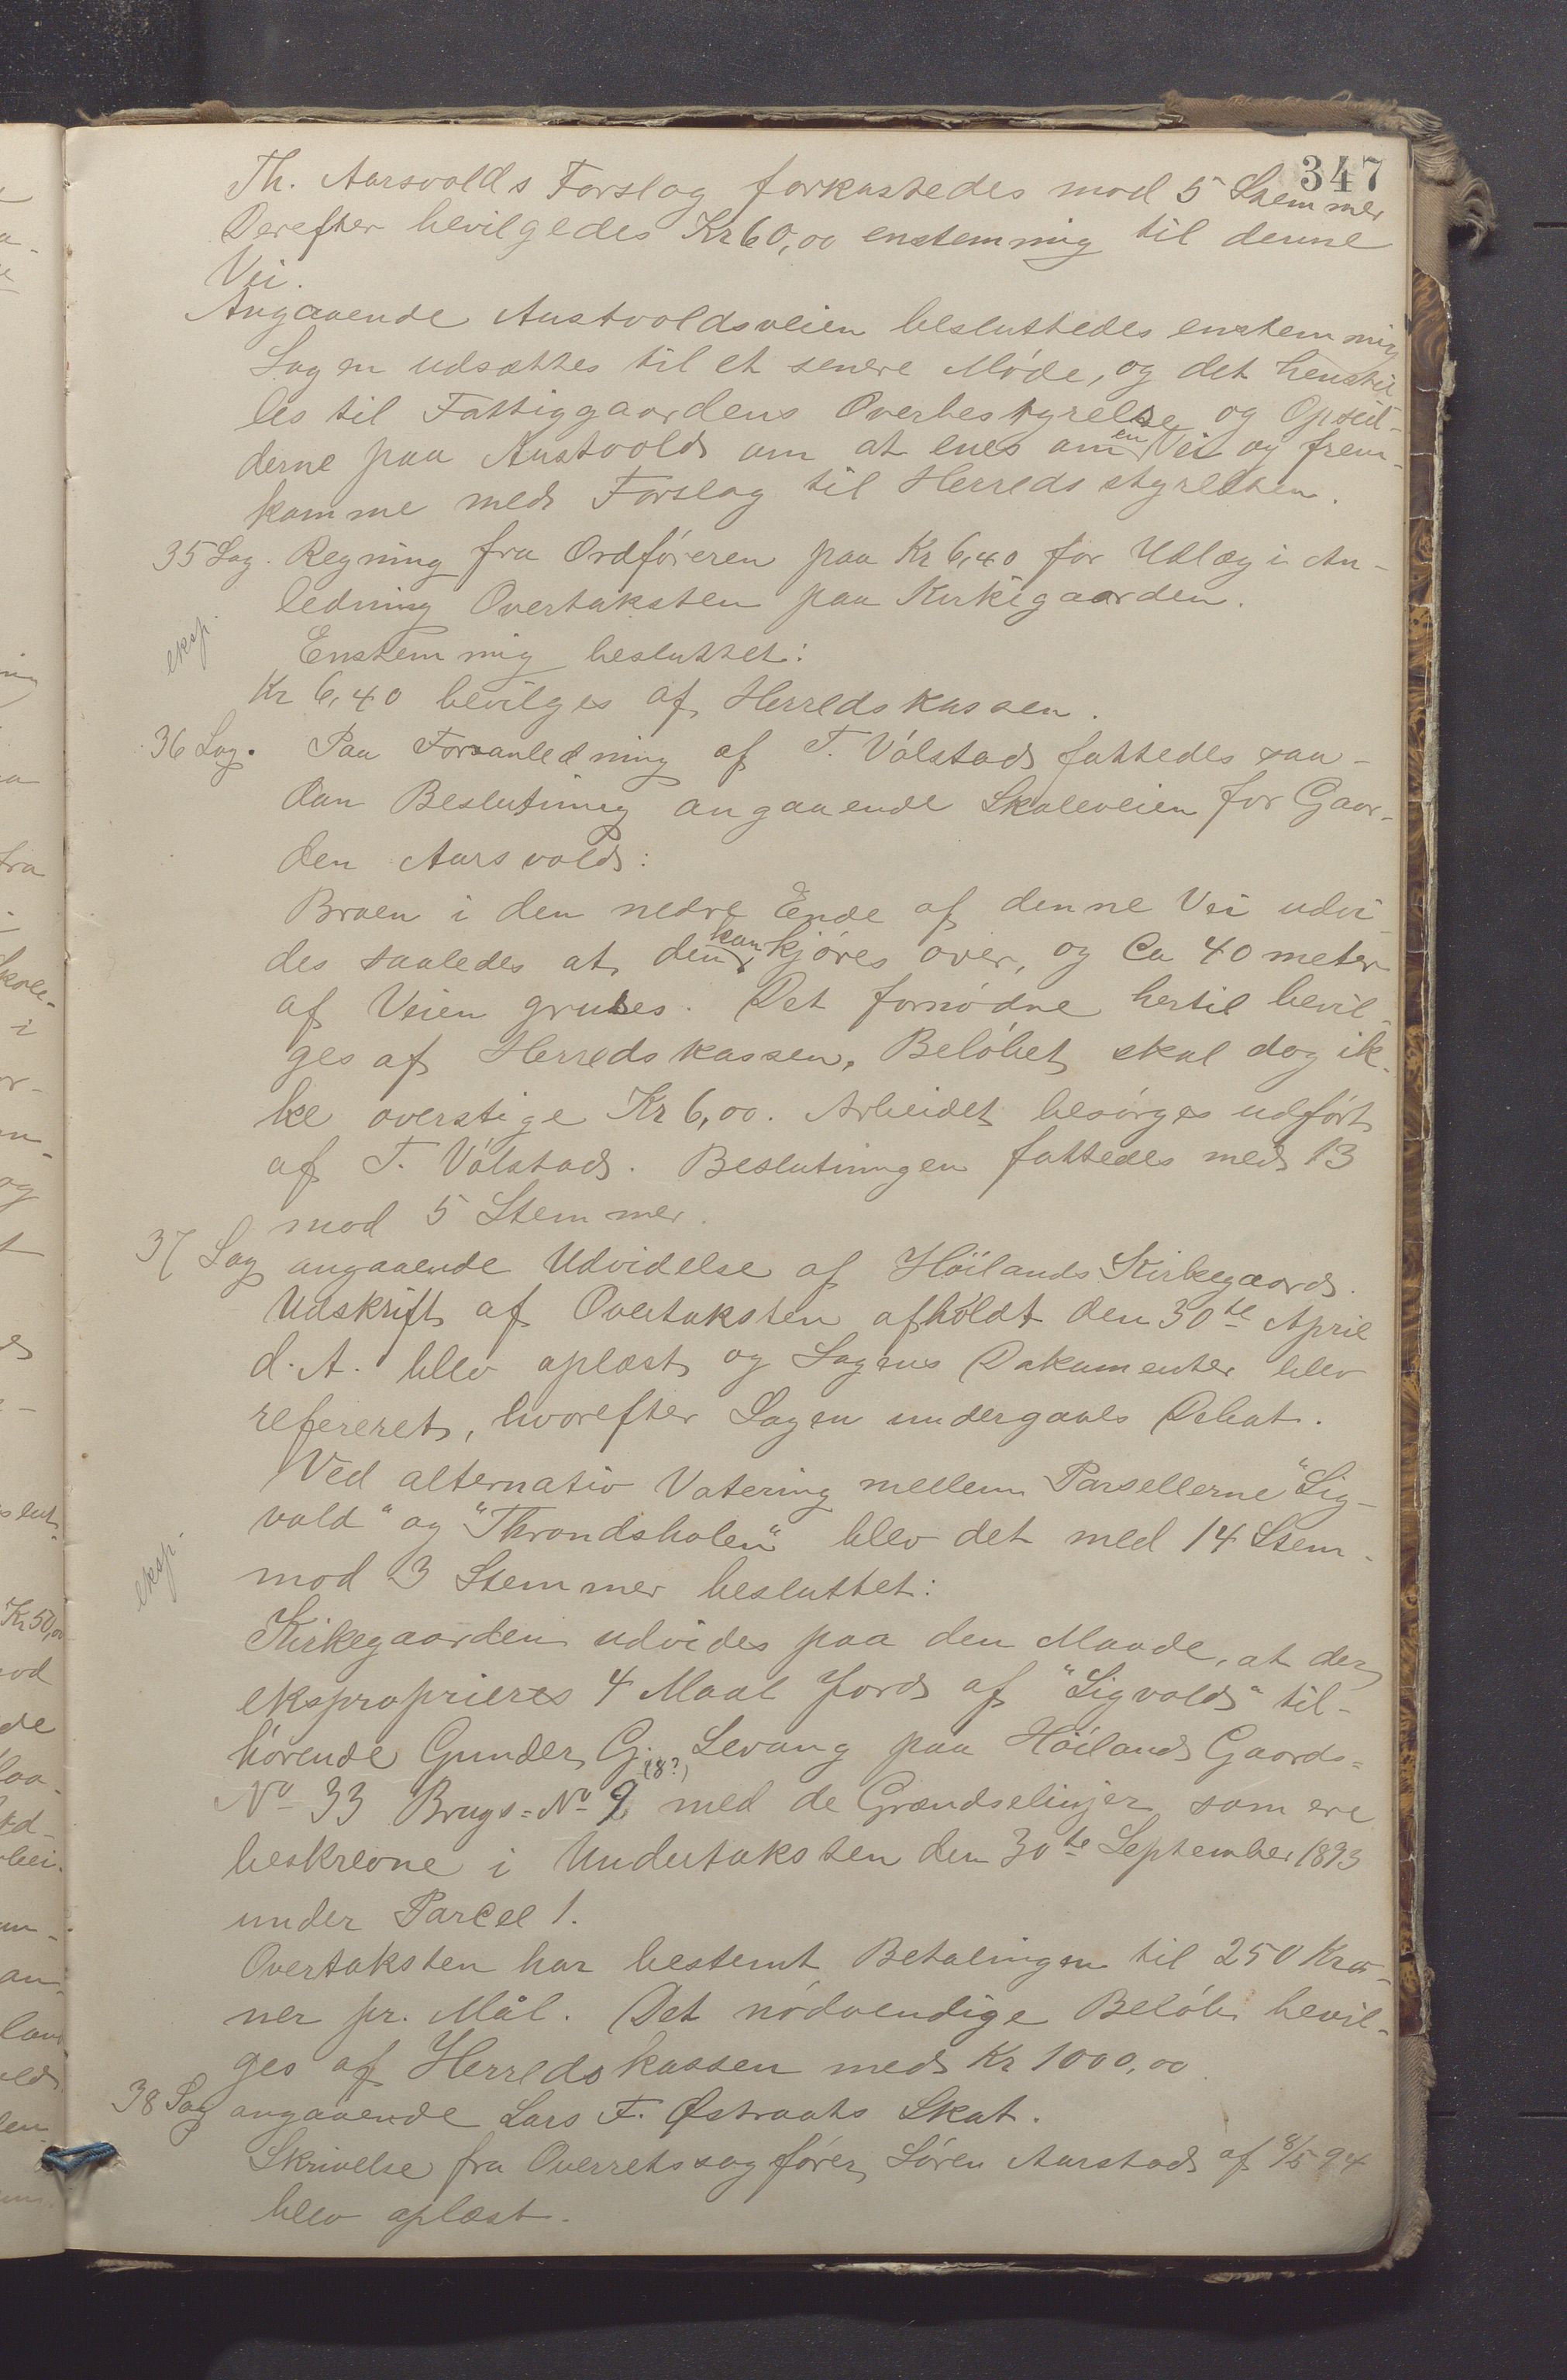 347
Th. Aarsvolds Forslag forkastedes mod 5 Stemmer
Derefter bevilgedes Kr 60,00 enstemmig til denne
Vei.
Angaaende Austvoldsveien besluttedes enstemmig
Sagen udsættes til et senere Møde, og det henstil
les til Fattiggaardens Overbestyrelse og Opsid-
derne paa Austvold om at enes om en Vei og frem-
komme med Forslag til Herredsstyrelsen.
35 Sag. Regning fra Ordføreren paa Kr 6,40 for Udlæg i An-
ledning Overtaksten paa Kirkigaarden.
eksp.
Enstemmig besluttet:
Kr 6,40 bevilges af Herredskassen.
36 Sag. Paa Foranledning af T. Vølstad fattedes saa-
dan Beslutning angaaende Skoleveien for Gaar-
den Aarsvold:
Broen i den nedre Ende af denne Vei udvi
des saaledes at den kan kjøres over, og Ca 40 meter
af Veien gruses. Det fornødne hertil bevil-
ges af Herredskassen, Beløbet skal dog ik-
ke overstige Kr 6,00. Arbeidet besørges udført
af T. Vølstad. Beslutningen fattedes med 13
mod 5 Stemmer.
37 Sag angaaende Udvidelse af Høilands Kirkegaard.
Udskrift af Overtaksten afholdt den 30te April
d. A. blev oplæst og Sagens Dokumenter blev
refereret, hvorefter Sagen undergaaes Debat.
Ved alternativ Votering mellem Parsellerne "Sig-
vald" og "Throndsholen" blev det med 14 Stem-
eksp
mod 3 Stemmer besluttet:
Kirkegaarden udvides paa den Maade, at der
eksproprieres 4 Maal Jord af "Sigvald" til-
hørende Gunder G. Levang paa Høiland Gaards=
No 33 Brugs=No 9 (8?) med de Grændselinjer som ere
beskrevne i Undertaksten den 30te September 1893
under Parcel 1.
Overtaksten har bestemt Betalingen til 250 Kro-
ner pr. Mål. Det nødvendige Beløb bevil-
ges af Herredskassen med Kr 1000,00
38 Sag angaaende Lars F. Østraats Skat.
Skrivelse fra Overretssagfører Søren Aarstad af 8/5 94
blev oplæst.